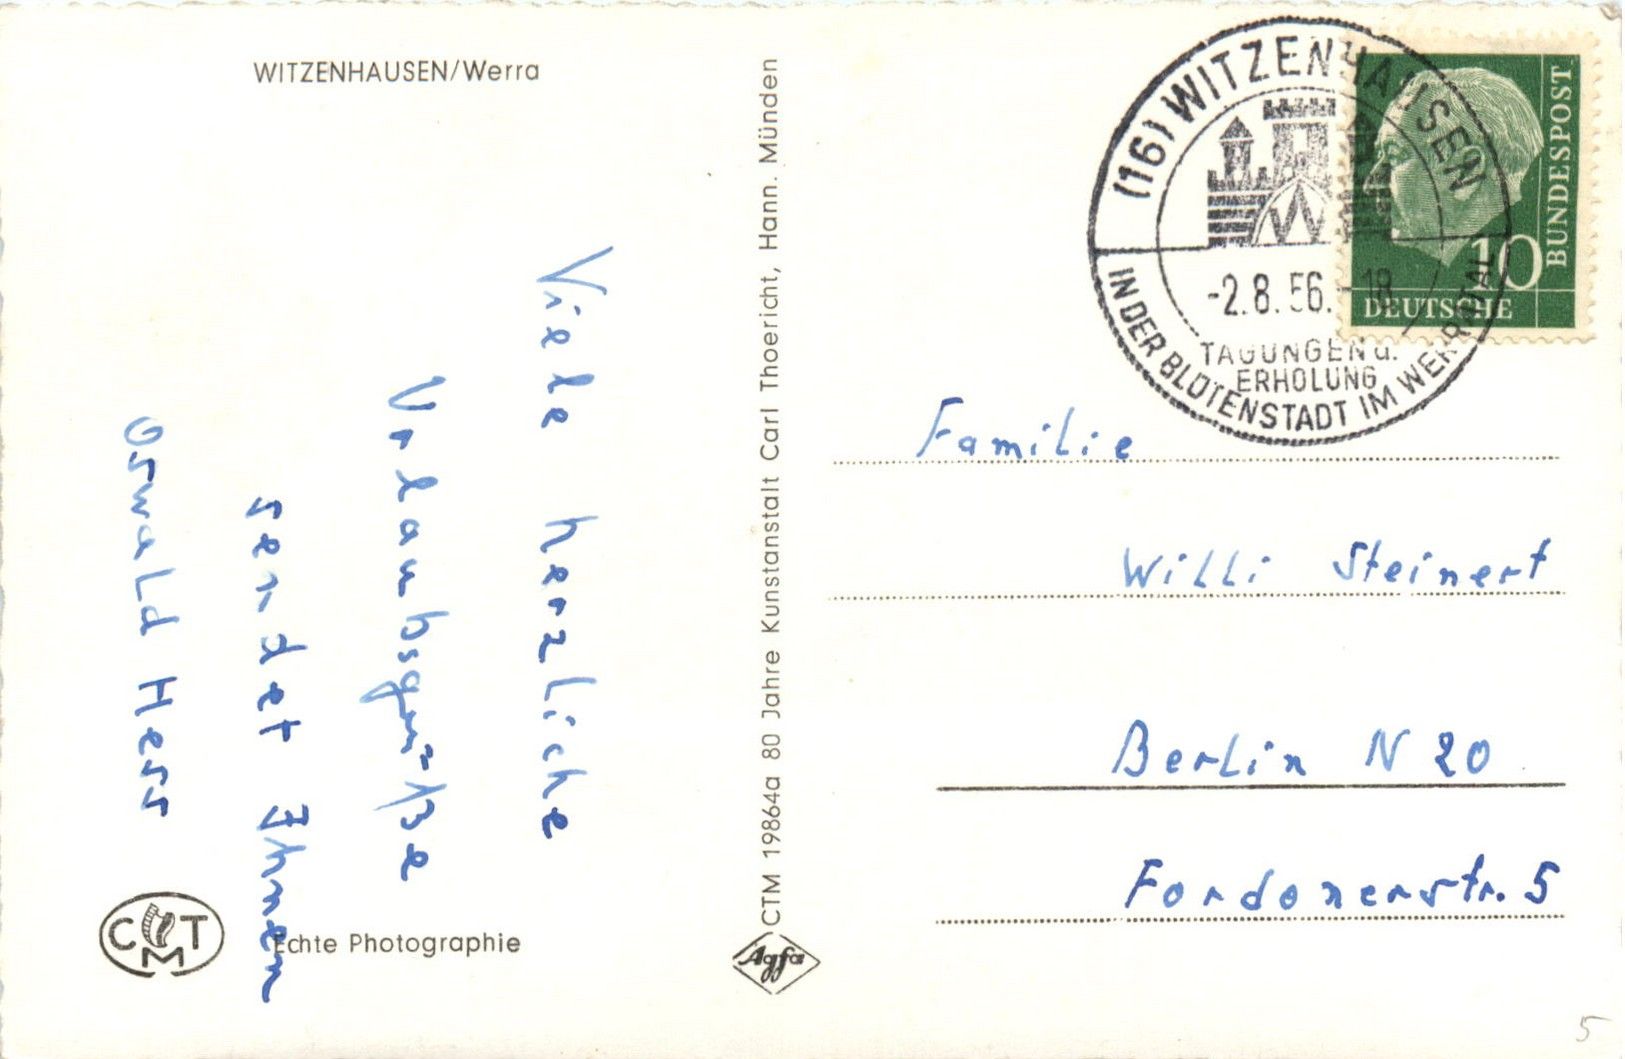 WITZENHAUSEN/Werra
Viele herzliche
Urlaubsgrüße
sendet Ihnen
Oswald Herr
CMT
Echte Photographie
CTM 19864a 80 Jahre Kunstanstalt Carl Thoericht, Hann. Münden
Agfa
(16) WITZENHAUSEN
-2.8.56.-18
TAGUNGEN u.
ERHOLUNG
IN DER BLÜTENSTADT IM WERRATAL
10
DEUTSCHE
BUNDESPOST
Familie
Willi Steinert
Berlin N 20
Fordonerstr. 5
5